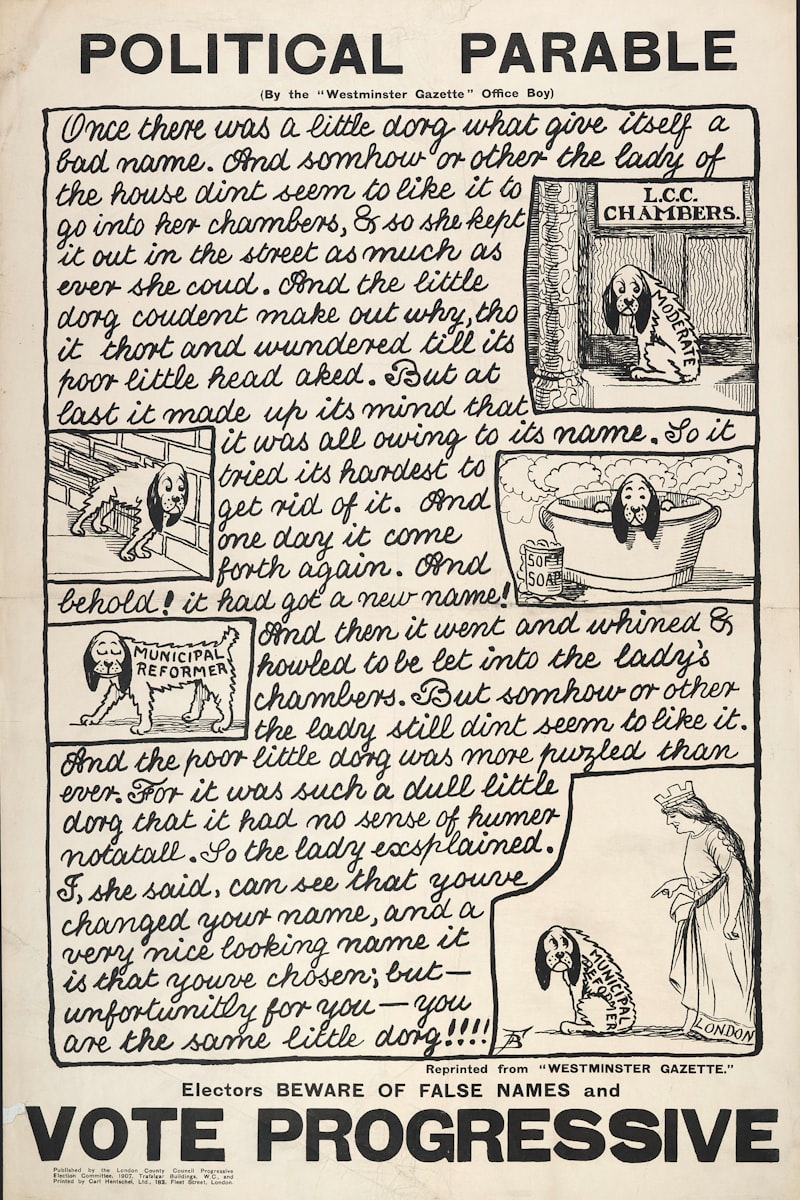 POLITICAL PARABLE
(By the "Westminster Gazette" Office Boy)
Once there was a little dorg what give itself a
bad name. And somhow or other the lady of
the house dint seem to like it to
go into her chambers, & so she kept
it out in the street as much as
ever she coud. And the little
dorg coudent make out why, tho
it thort and wundered till its
poor little head aked. But at
last it made up its mind that
L.C.C.
CHAMBERS.
MODERATE
it was all owing to its name. So it
tried its hardest to
get rid of it. And
one day it come
forth again. And
behold! it had got a new name!
SOFT
SOAP
MUNICIPAL
REFORMER
And then it went and whined &
howled to be let into the lady's
chambers. But somhow or other
the lady still dint seem to like it.
And the poor little dorg was more puzled than
ever. For it was such a dull little
dorg that it had no sense of humer
notatall. So the lady exsplained.
I, she said, can see that youve
changed your name, and a
very nice looking name it
is that youve chosen; but—
unfortunitly for you — you
are the same little dorg!!!!
MUNICIPAL
REFORMER
LONDON
Reprinted from "WESTMINSTER GAZETTE."
Electors BEWARE OF FALSE NAMES and
VOTE PROGRESSIVE
Published by the London County Council Progressive
Election Committee, 1907, Trafalgar Buildings, W.C., and
Printed by Carl Hentschel, Ltd., 182, Fleet Street, London.